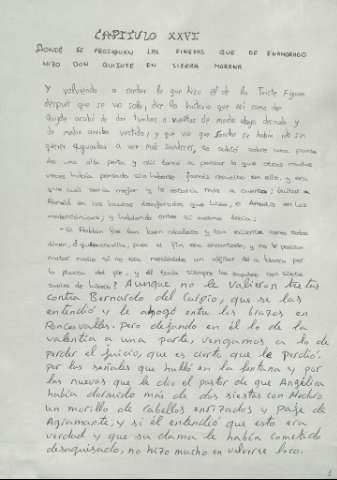 CAPITULO XXVI
DONDE SE PROSIGUEN LAS FINEZAS QUE DE ENAMORADO
HIZO DON QUIJOTE EN SIERRA MORENA
Y volviendo a contar lo que hizo el de la Triste Figura
después que se vio solo, dice la historia que así como don
Quijote acabó de dar tumbas o vueltas de medio abajo desnudo y
de medio arriba vestido, y que vio que Sancho se había ido sin
querer aguardar a ver más sandeces, se subió sobre una punta
de una alta peña y allí tornó a pensar lo que otras muchas
veces había pensado sin haberse jamás resuelto en ello, y era
que cuál sería mejor y le estaría más a cuento: imitar a
Roldán en las locuras desaforadas que hizo, o Amadís en las
malencónicas; y hablando entre sí mesmo decía:
-Si Roldán fue tan buen caballero y tan valiente como todos
dicen, ¿qué maravilla, pues al fin era encantado, y no le podía
matar nadie si no era metiéndole un alfiler de a blanca por
la planta del pie, y él traía siempre los zapatos con siete
suelas de hierro? Aunque no le valieron tretas
contra Bernardo del Carpio, que se las
entendió y le ahogó entre los brazos en
Roncesvalles. Pero dejando en él lo de la
valentía a una parte, vengamos a lo de
perder el juicio, que es cierto que le perdió.
por las señales que halló en la fontana y por
las nuevas que le dio el pastor de que Angélica
había dormido más de dos siestas con Medoro
un morillo de cabellos enrizados y paje de
Agramante; y si él entendió que esto era
verdad y que su dama le había cometido
desaguisado, no hizo mucho en volverse loco.